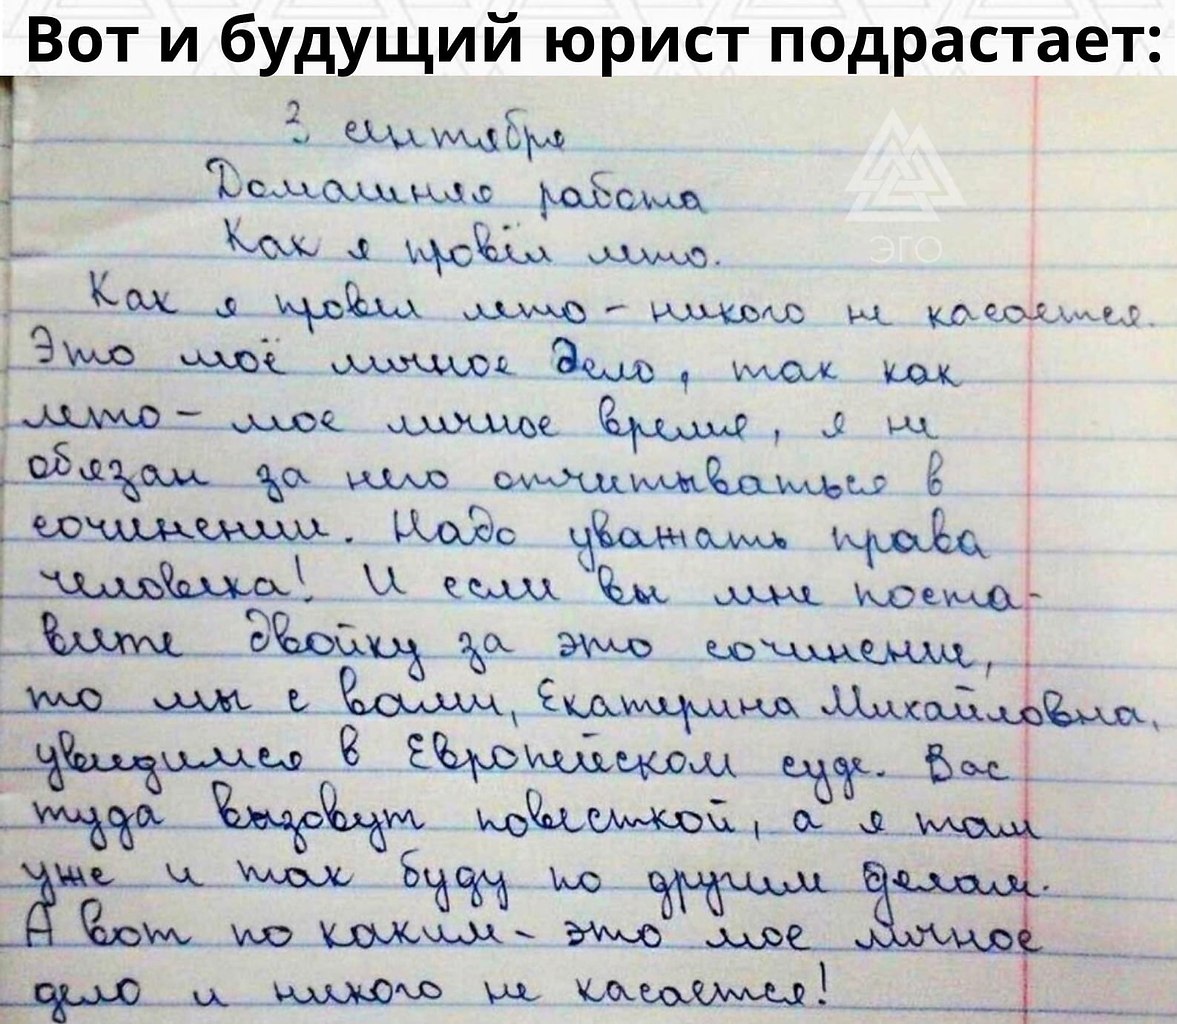 Вот и будущий юрист подрастает:
3 сентября
Домашняя работа
Как я провёл лето.
Как я провел лето - никого не касается.
Это моё личное дело, так как
лето - мое личное время, я не
обязан за него отчитываться в
сочинении. Надо уважать права
человека! И если вы мне поста-
вите двойку за это сочинение,
то мы с вами, Екатерина Михайловна,
увидимся в Европейском суде. Вас
туда вызовут повесткой, а я там
уже и так буду по другим делам.
А вот по каким - это мое личное
дело и никого не касается!
ЭГО